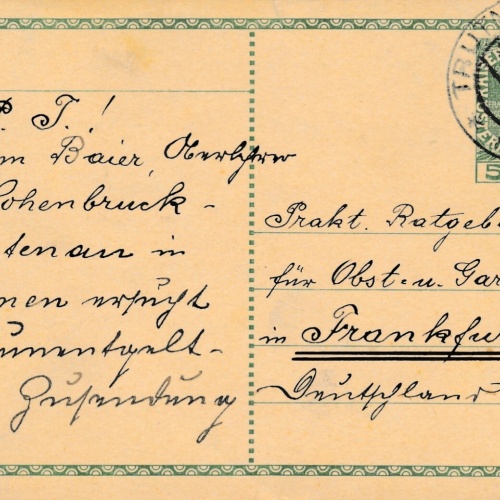 P T.!
im Baier, Oberlehrer
Hohenbruck -
tenau in
men ersucht
unentgelt -
Zusendung
TRU
5
Prakt. Ratgeb
für Obst- u. Gar
in Frankfu
Deutschland